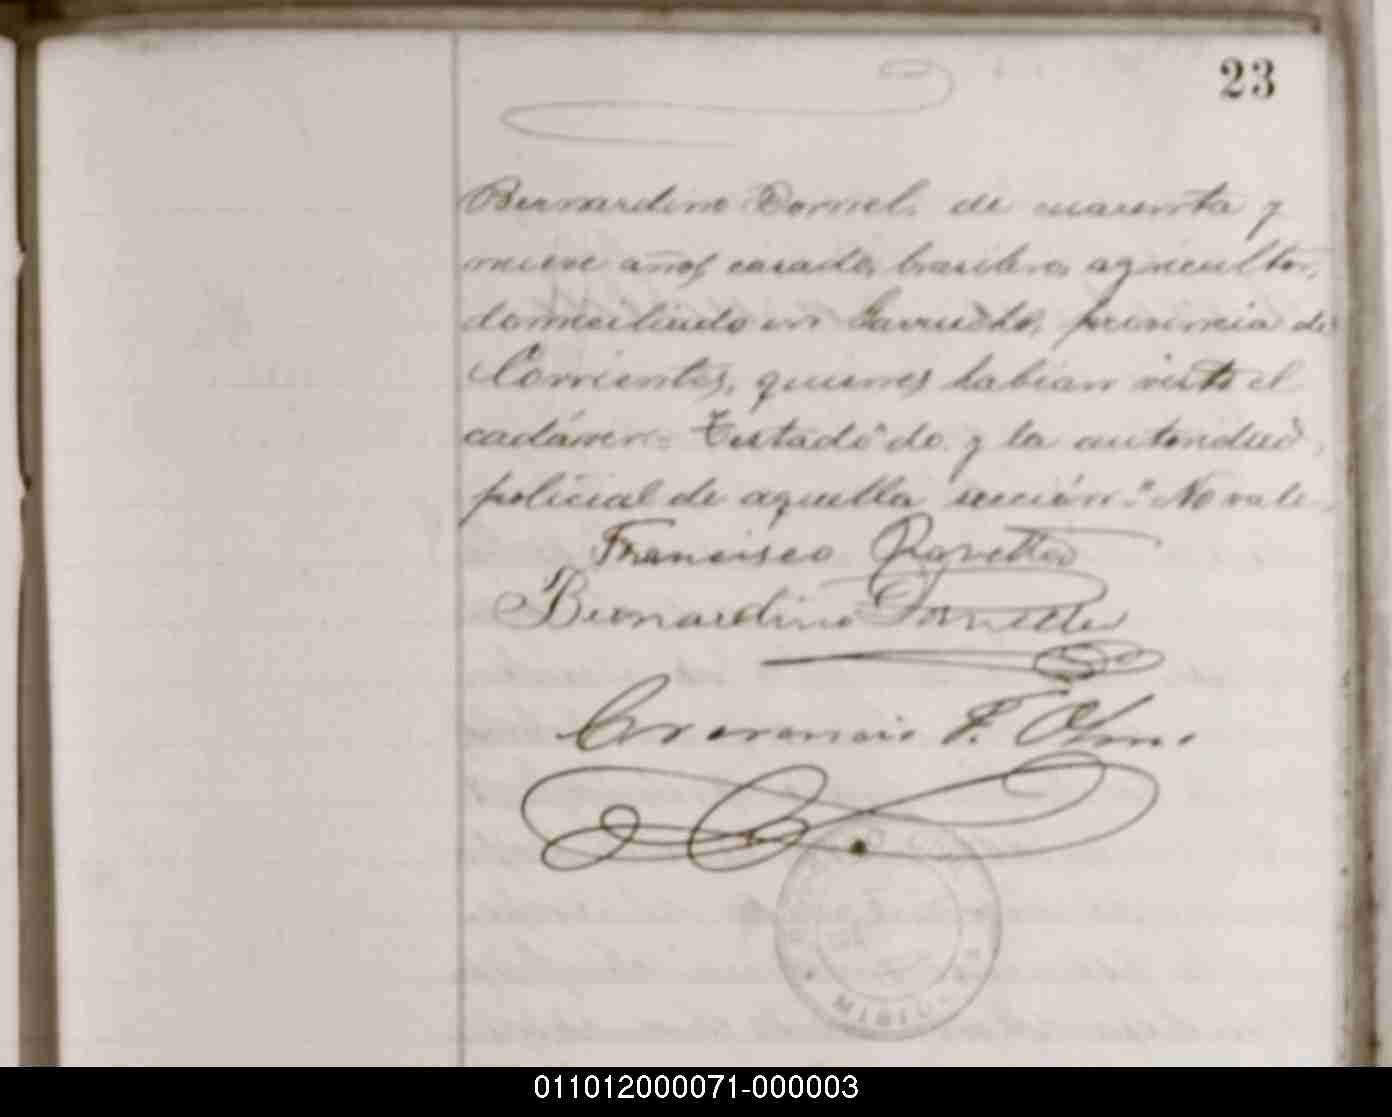 23
Bernardino Dornel, de cuarenta y
nueve años casado, brasilero, agricultor,
domiciliado en Garruchos, provincia de
Corrientes, quienes habian visto el
cadáver.- Testado "do. y la autoridad
policial de aquella sección." No vale.
Francisco
Bernardino Dornelles
F.
MISIO
011012000071-000003